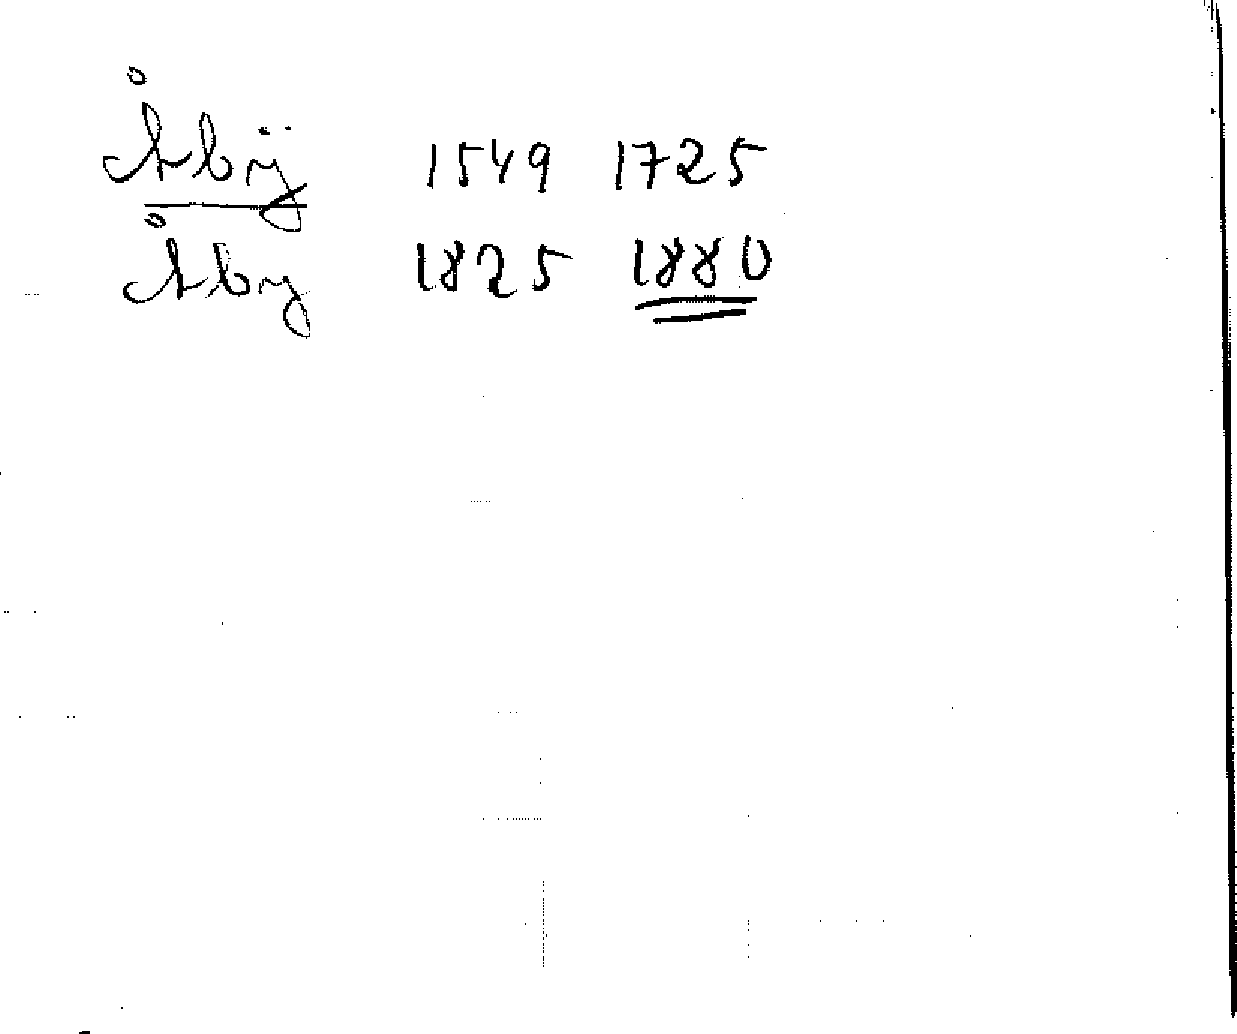 Åbÿ 1549 1725
Åby 1825 1880